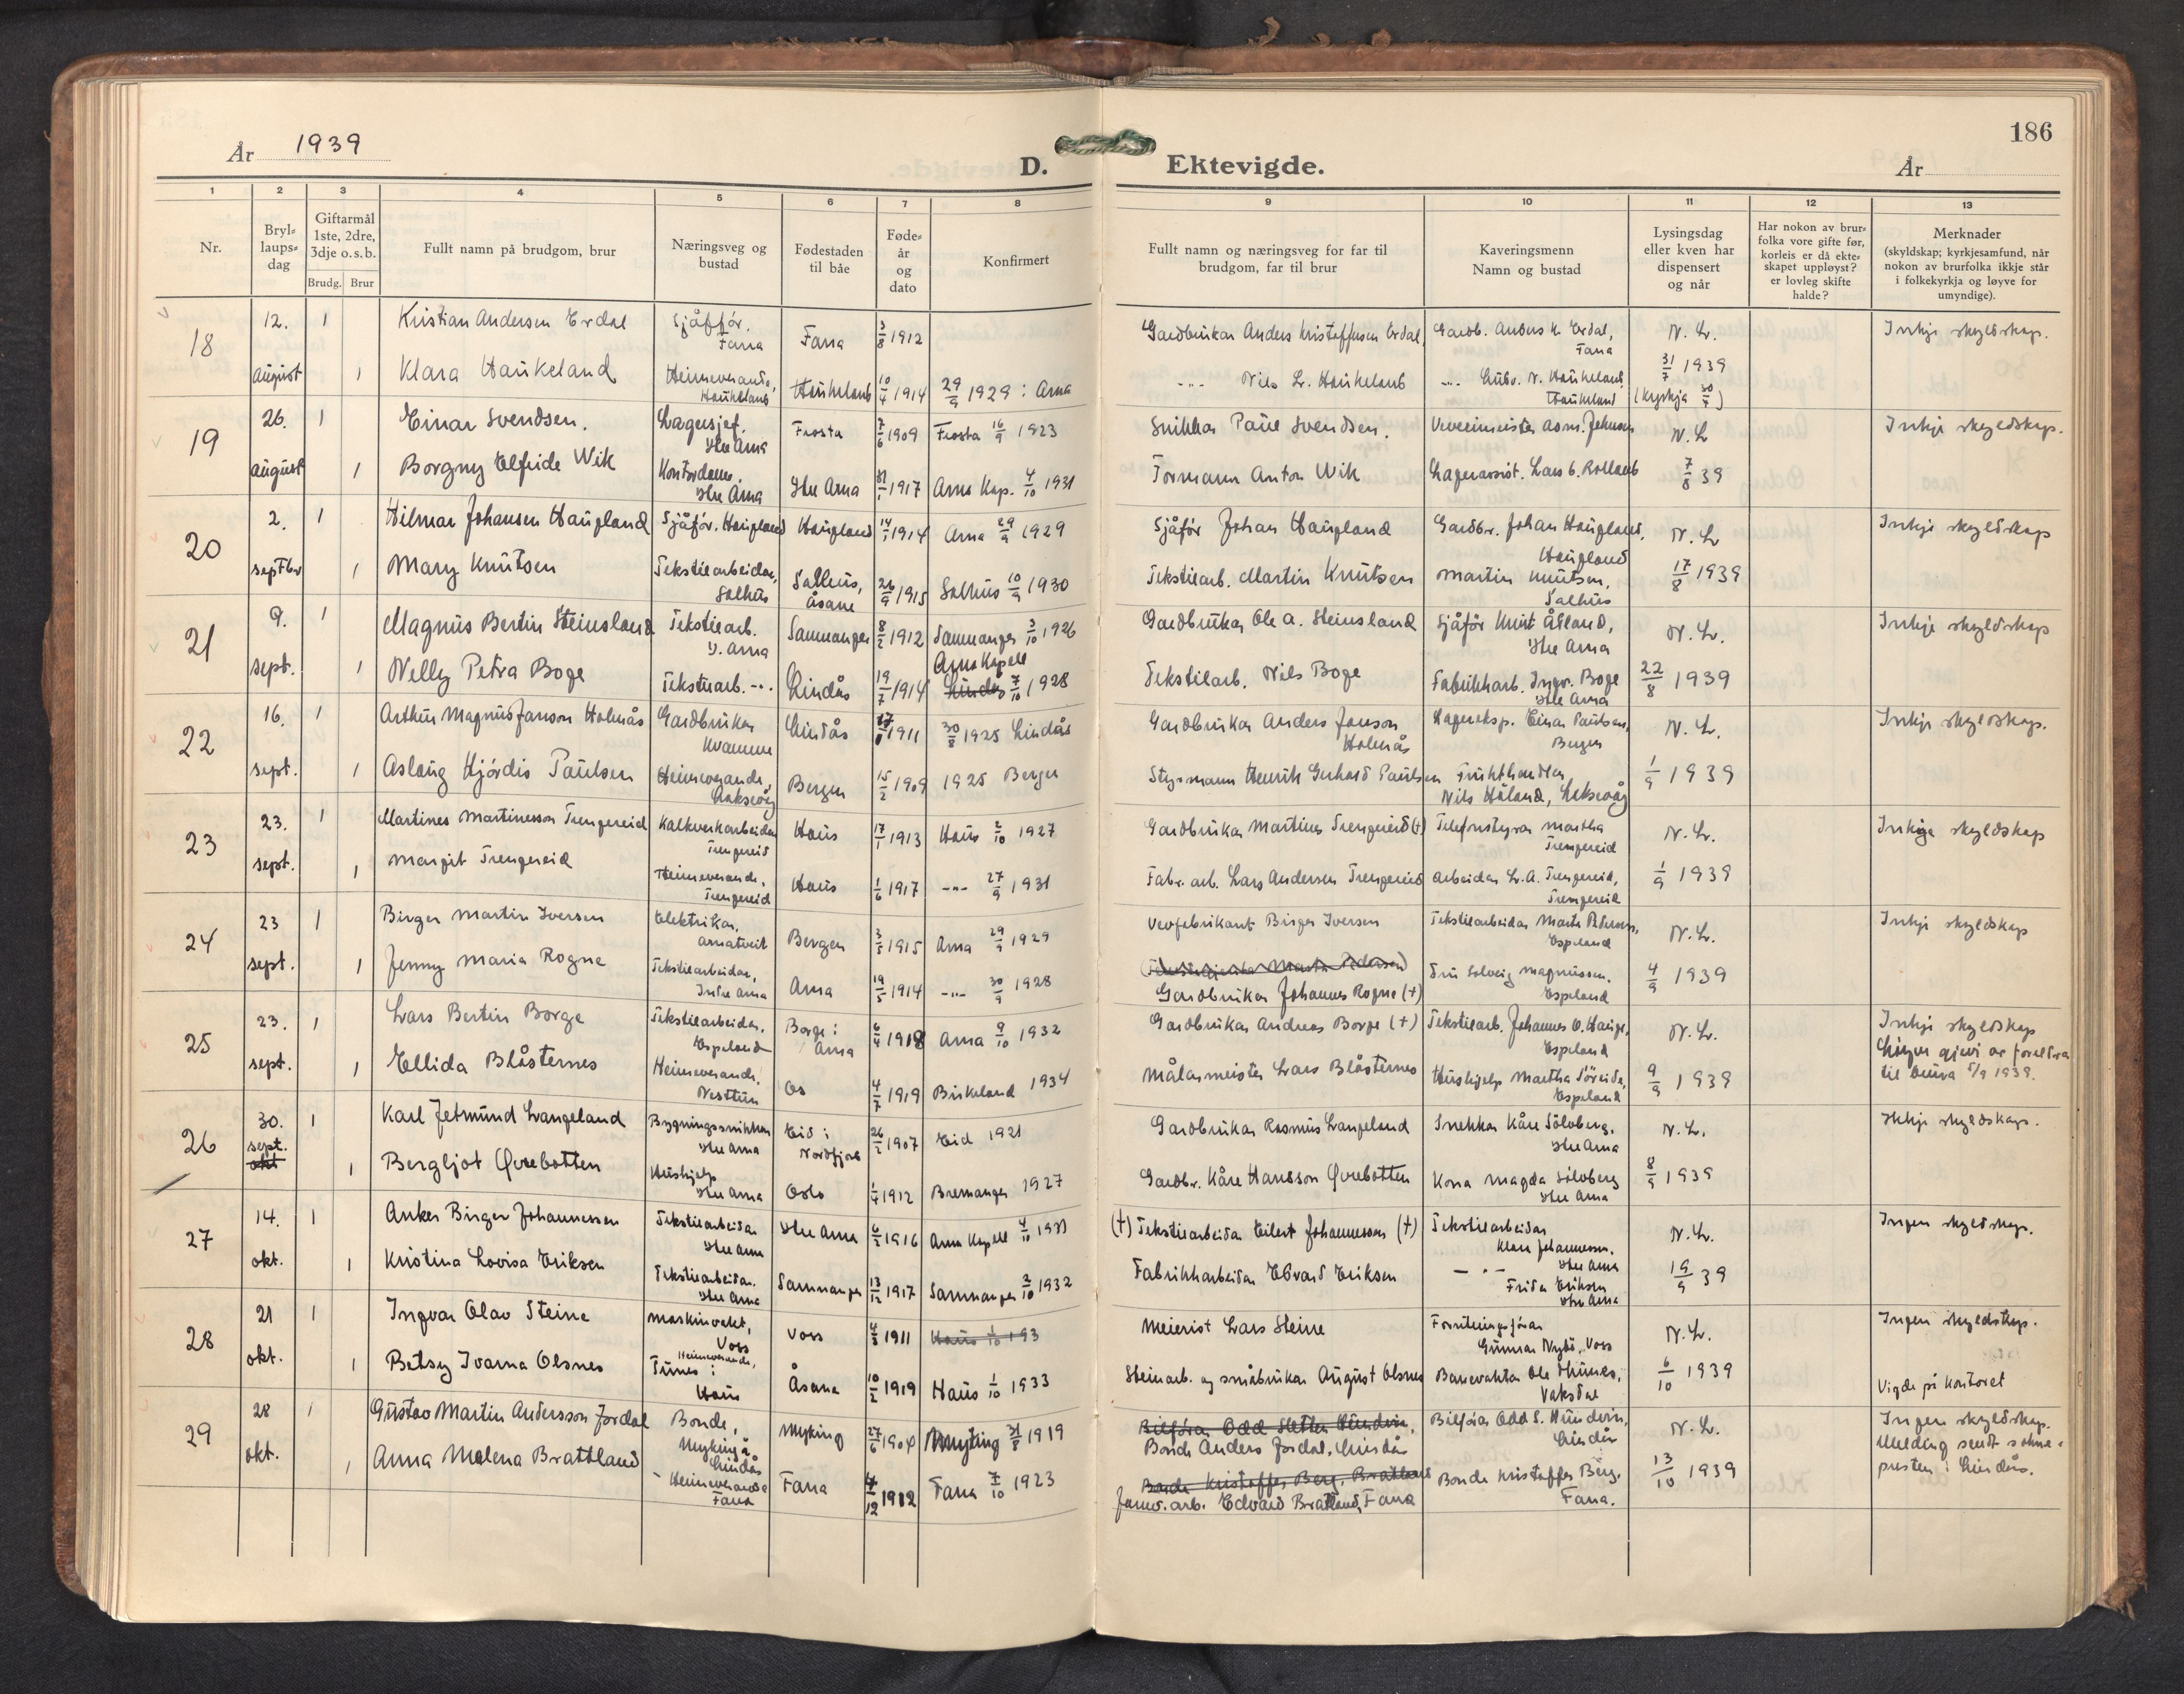 186
År 1939
D. Ektevigde.
År
1 2 3 4 5 6 7 8 9 10 11 12 13
Nr.
Bryl-
laups-
dag
Giftarmål
1ste, 2dre,
3dje o. s. b.
Brudg. Brur
Fullt namn på brudgom, brur
Næringsveg og
bustad
Fødestaden
til båe
Føde-
år
og
dato
Konfirmert
Fullt namn og næringsveg for far til
brudgom, far til brur
Kaveringsmenn
Namn og bustad
Lysingsdag
eller kven har
dispensert
og når
Har nokon av brur-
folka vore gifte før,
korleis er då ekte-
skapet uppløyst?
er lovleg skifte
halde?
Merknader
(skyldskap; kyrkjesamfund, når
nokon av brurfolka ikkje står
i folkekyrkja og løyve for
umyndige).
18
12. 1 Kristian Andersen Erdal Sjåffør. Fana Fana 3/8 1912 Gardbrukar Anders Kristoffersen Erdal, Gardb. Anders K. Erdal, Fana N. L. Inkje skyldskap.
august 1 Klara Haukeland Heimeverande, Haukeland Haukeland 10/4 1914 29/9 1929 : Arna -"- Nils L. Haukeland -"- Gudv. N. Haukeland, Haukeland 31/7 1939 (kyrkja 30/7)
19
26. 1 Einar Svendsen. Lagersjef. Ytre Arna Frosta 7/6 1909 Frosta 16/9 1923 Snikkar Paul Svendsen. Vevemeister Asm. Johnsen N. L Inkje skyldskap.
august 1 Borgny Elfride Wik Kontordame. Ytre Arna Ytre Arna 31/1 1917 Arna Kap. 4/10 1931 Formann Anton Wik Lagerassist. Lars b. Rolland 7/8 39
20
2. 1 Hilmar Johansen Haugland Sjåfør. Haugland Haugland 14/1 1914 Arna 29/9 1929 Sjåfør Johan Haugland Gardbr. Johan Haugland, Haugland N. L Inkje skyldskap
septbr 1 Mary Knutsen Tekstilarbeidar, Salhus Salhus, Åsane 26/9 1915 Salhus 10/9 1930 Tekstilarb. Martin Knutsen Martin Knutsen, Salhus 17/8 1939
21
9. 1 Magnus Bertin Steinsland Tekstilarb. Y. Arna Samnanger 8/2 1912 Samnanger 3/10 1926 Gardbrukar Ole A. Steinsland Sjåfør Knut Åsland, Ytre Arna N. L. Inkje skyldskap
sept. 1 Nelly Petra Boge Tekstilarb. -"- Lindås 19/7 1914 Arna Kapell Lindås 7/10 1928 Tekstilarb. Nils Boge Fabrikkarb. Ingv. Boge Ytre Arna 22/8 1939
22
16. 1 Arthur Magnus Janson Holmås Gardbrukar Kvamme Lindås 1911 30/8 1925 Lindås Gardbrukar Anders Janson Holmås Lagereksp. Einar Paulsen, Bergen N. L. Inkje skyldskap.
sept. 1 Aslaug Hjørdis Paulsen Heimeverande, Laksevåg Bergen 15/2 1909 1925 Bergen Styrmann Henrik Gerhard Paulsen Frukthandlar Nils Håland, Laksevåg 1/9 1939
23
23. 1 Martines Martinesson Trengereid Kalkverkarbeidar Trengereid Haus 17/1 1913 Haus 2/10 1927 Gardbrukar Martines Trengereid (+) Telefonstyrar Martha Trengereid N. L. Inkje skyldskap
sept. 1 Margit Trengereid Heimeverande, Trengereid Haus 1/6 1917 -"- 27/9 1931 Fabr. arb. Lars Andersen Trengereid Arbeidar L. A. Trengereid, Trengereid 1/9 1939
24
23 1 Birger Martin Iversen Elektrikar, Arnatveit Bergen 3/5 1915 Arna 29/9 1929 Vevfabrikant Birger Iversen Tekstilarbeidar Marta Pedersen, Espeland N. L. Inkje skyldskap
sept. 1 Jenny Maria Rogne Tekstilarbeidar, Indre Arna Arna 19/5 1914 -"- 30/9 1928 Gardbrukar Johannes Rogne (+) Fru Solveig Magnussen. Espeland 4/9 1939
25
23. 1 Lars Bertin Borge Tekstilarbeidar, Espeland Borge i Arna 6/4 1918 Arna 9/10 1932 Gardbrukar Andreas Borge (+) Tekstilarb. Johannes O. Hauge, Espeland N. L. Inkje skyldskap
sept. 1 Ellida Blåsternes Heimeverande, Nesttun Os 4/7 1919 Birkeland 1934 Målarmeister Lars Blåsternes Hushjelp Martha Söreide, Espeland 9/9 1939 Løyve gjevi av foreldra til brura 5/9 1939.
26
30. 1 Karl Jetmund Langeland Bygningssnikkar Ytre Arna Eid i Nordfjord 26/2 1907 Eid 1921 Gardbrukar Rasmus Langeland Snekkar Kåre Sölvberg. Ytre Arna N. L. Ikkje skyldskap.
sept. okt 1 Bergljot Øvrebotten Hushjelp Ytre Arna Oslo 1/4 1912 Bremanger 1927 Gardbr. Kåre Hansson Øvrebotten Kona Magda Sölvberg Ytre Arna 8/9 1939
27
14. 1 Anker Birger Johannessen Tekstilarbeidar Ytre Arna Ytre Arna 6/2 1916 Arna Kapell 4/10 1931 (+) Tekstilarbeidar Eilert Johannessen (+) Tekstilarbeidar Klara Johannessen. Ytre Arna N. L. Ingen skyldskap.
okt. 1 Kristina Lovisa Eriksen Tekstilarbeidar. Ytre Arna Samnanger 13/12 1917 Samnanger 2/10 1932 Fabrikkarbeidar Edvard Eriksen -"- Frida Eriksen Ytre Arna 19/9 39
28
21 1 Ingvar Olav Steine Maskinvakt, Voss Voss 4/3 1911 Haus 1/10 193 Meierist Lars Steine Forretningsførar Gunnar Nybö, Voss N. L. Ingen skyldskap.
okt. 1 Betsy Ivarna Olsnes Heimeverande, Tunes i Haus Åsane 10/2 1919 Haus 1/10 1933 Steinarb. og småbrukar August Olsnes Banevaktar Ole Thunes, Vaksdal 6/10 1939 Vigde på kontoret
29
28 1 Gustav Martin Andersson Jordal Bonde, Myking i Lindås Myking 27/6 1904 Myking 31/8 1919 Bilførar Odd Bonde Anders Jordal, Lindås Bilførar Odd S. Hundvin, Lindås N. L. Ingen skyldskap.
okt. 1 Anna Malena Brattland Heimeverande Fana Fana 4/12 1912 Fana 7/10 1923 Bonde Kristoffer Berg, Brattland Jarnv. arb. Edvard Brattland, Fana Bonde Kristoffer Berg. Fana. 13/10 1939 Melding sendt sokne- presten i Lindås.